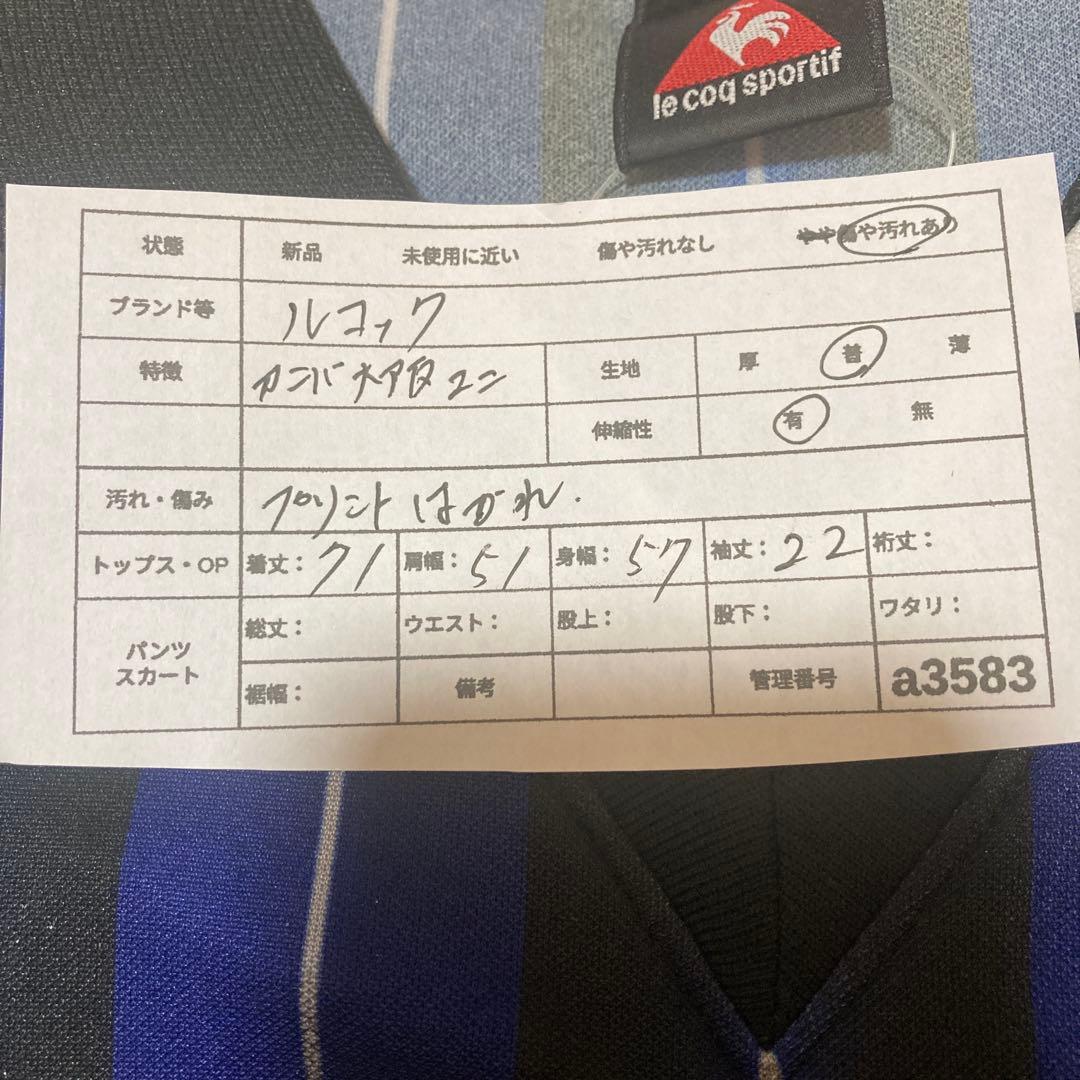 le coq sportif
状態 新品 未使用に近い 傷や汚れなし や汚れあり
ブランド等 ルコック
特徴 ガンバ大阪ユニ 生地 厚 普 薄
伸縮性 有 無
汚れ・傷み プリントはがれ.
トップス・OP 着丈:71 肩幅:51 身幅:57 袖丈:22 裄丈:
パンツ スカート 総丈: ウエスト: 股上: 股下: ワタリ:
裾幅: 備考 管理番号 a3583